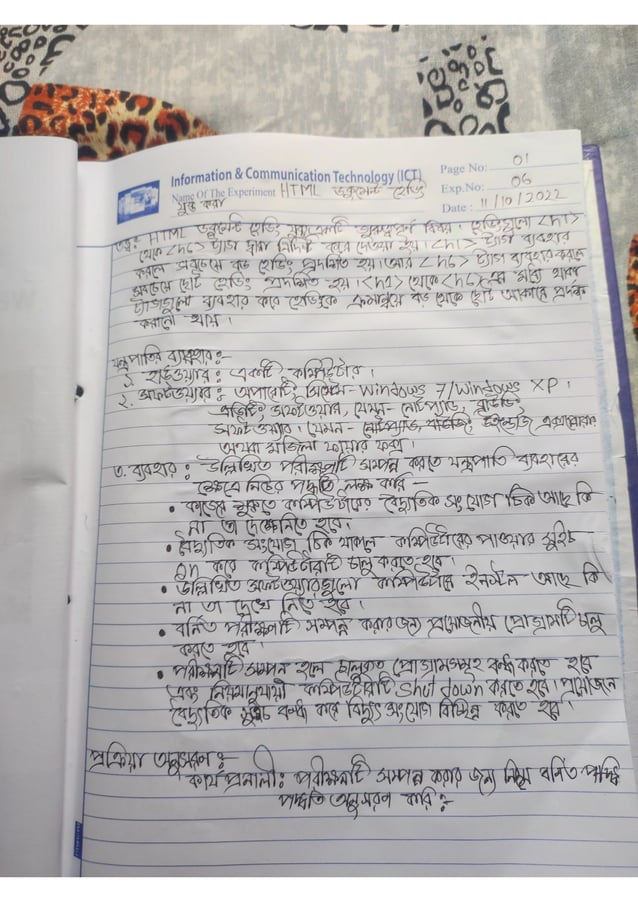 Information & Communication Technology (ICT)
Page No: 01
Name Of The Experiment HTML ডকুমেন্ট হেডিং
Exp.No: 06
যুক্ত করা
Date : 11/10/2022
তত্ত্ব: HTML ডকুমেন্ট হেডিং একটি গুরুত্বপূর্ণ বিষয়। হেডিংগুলো <h1>
থেকে <h6> ট্যাগ দ্বারা নির্দিষ্ট করে দেওয়া হয়। <h1> ট্যাগ ব্যবহার
করলে সবচেয়ে বড় হেডিং প্রদর্শিত হয়। আর <h6> ট্যাগ ব্যবহার করলে
সবচেয়ে ছোট হেডিং প্রদর্শিত হয়। <h1> থেকে <h6> এর মধ্যে থাকা
ট্যাগগুলো ব্যবহার করে হেডিংকে ক্রমান্বয়ে বড় থেকে ছোট আকারে
করানো যায়।
যন্ত্রপাতির ব্যবহার:-
১. হার্ডওয়্যার: একটি কম্পিউটার।
২. সফটওয়্যার: অপারেটিং সিস্টেম- Windows 7/Windows XP।
এডিটিং সফটওয়্যার, যেমন- নোটপ্যাড, ব্রাউজিং
সফটওয়্যার। যেমন- নোটপ্যাড, এক্সপ্লোরার
অথবা মজিলা ফায়ার ফক্স।
৩. ব্যবহার: উল্লিখিত পরীক্ষণটি সম্পন্ন করতে যন্ত্রপাতি ব্যবহারের
ক্ষেত্রে নিচের পদ্ধতি লক্ষ করি -
• কাজের শুরুতে কম্পিউটারের বৈদ্যুতিক সংযোগ ঠিক আছে কি
না তা দেখে নিতে হবে।
• বৈদ্যুতিক সংযোগ ঠিক থাকলে কম্পিউটারের পাওয়ার সুইচ
on করে কম্পিউটারটি চালু করতে হবে।
• উল্লিখিত সফটওয়্যারগুলো কম্পিউটারে ইনস্টল আছে কি
না তা দেখে নিতে হবে।
• বর্নিত পরীক্ষণটি সম্পন্ন করার জন্য প্রয়োজনীয় প্রোগ্রামটি চালু
করতে হবে।
• পরীক্ষণটি সম্পন্ন হলে চালুকৃত প্রোগ্রামসমূহ বন্ধ করতে হবে
এবং নিয়মানুযায়ী কম্পিউটারটি Shut down করতে হবে। প্রয়োজনে
বৈদ্যুতিক সুইচ বন্ধ করে বিদ্যুৎ সংযোগ বিচ্ছিন্ন করতে হবে।
প্রক্রিয়া অনুসরণ:-
কার্যপ্রনালী: পরীক্ষণটি সম্পন্ন করার জন্য নিম্নে বর্নিত
পদ্ধতি অনুসরণ করি:-